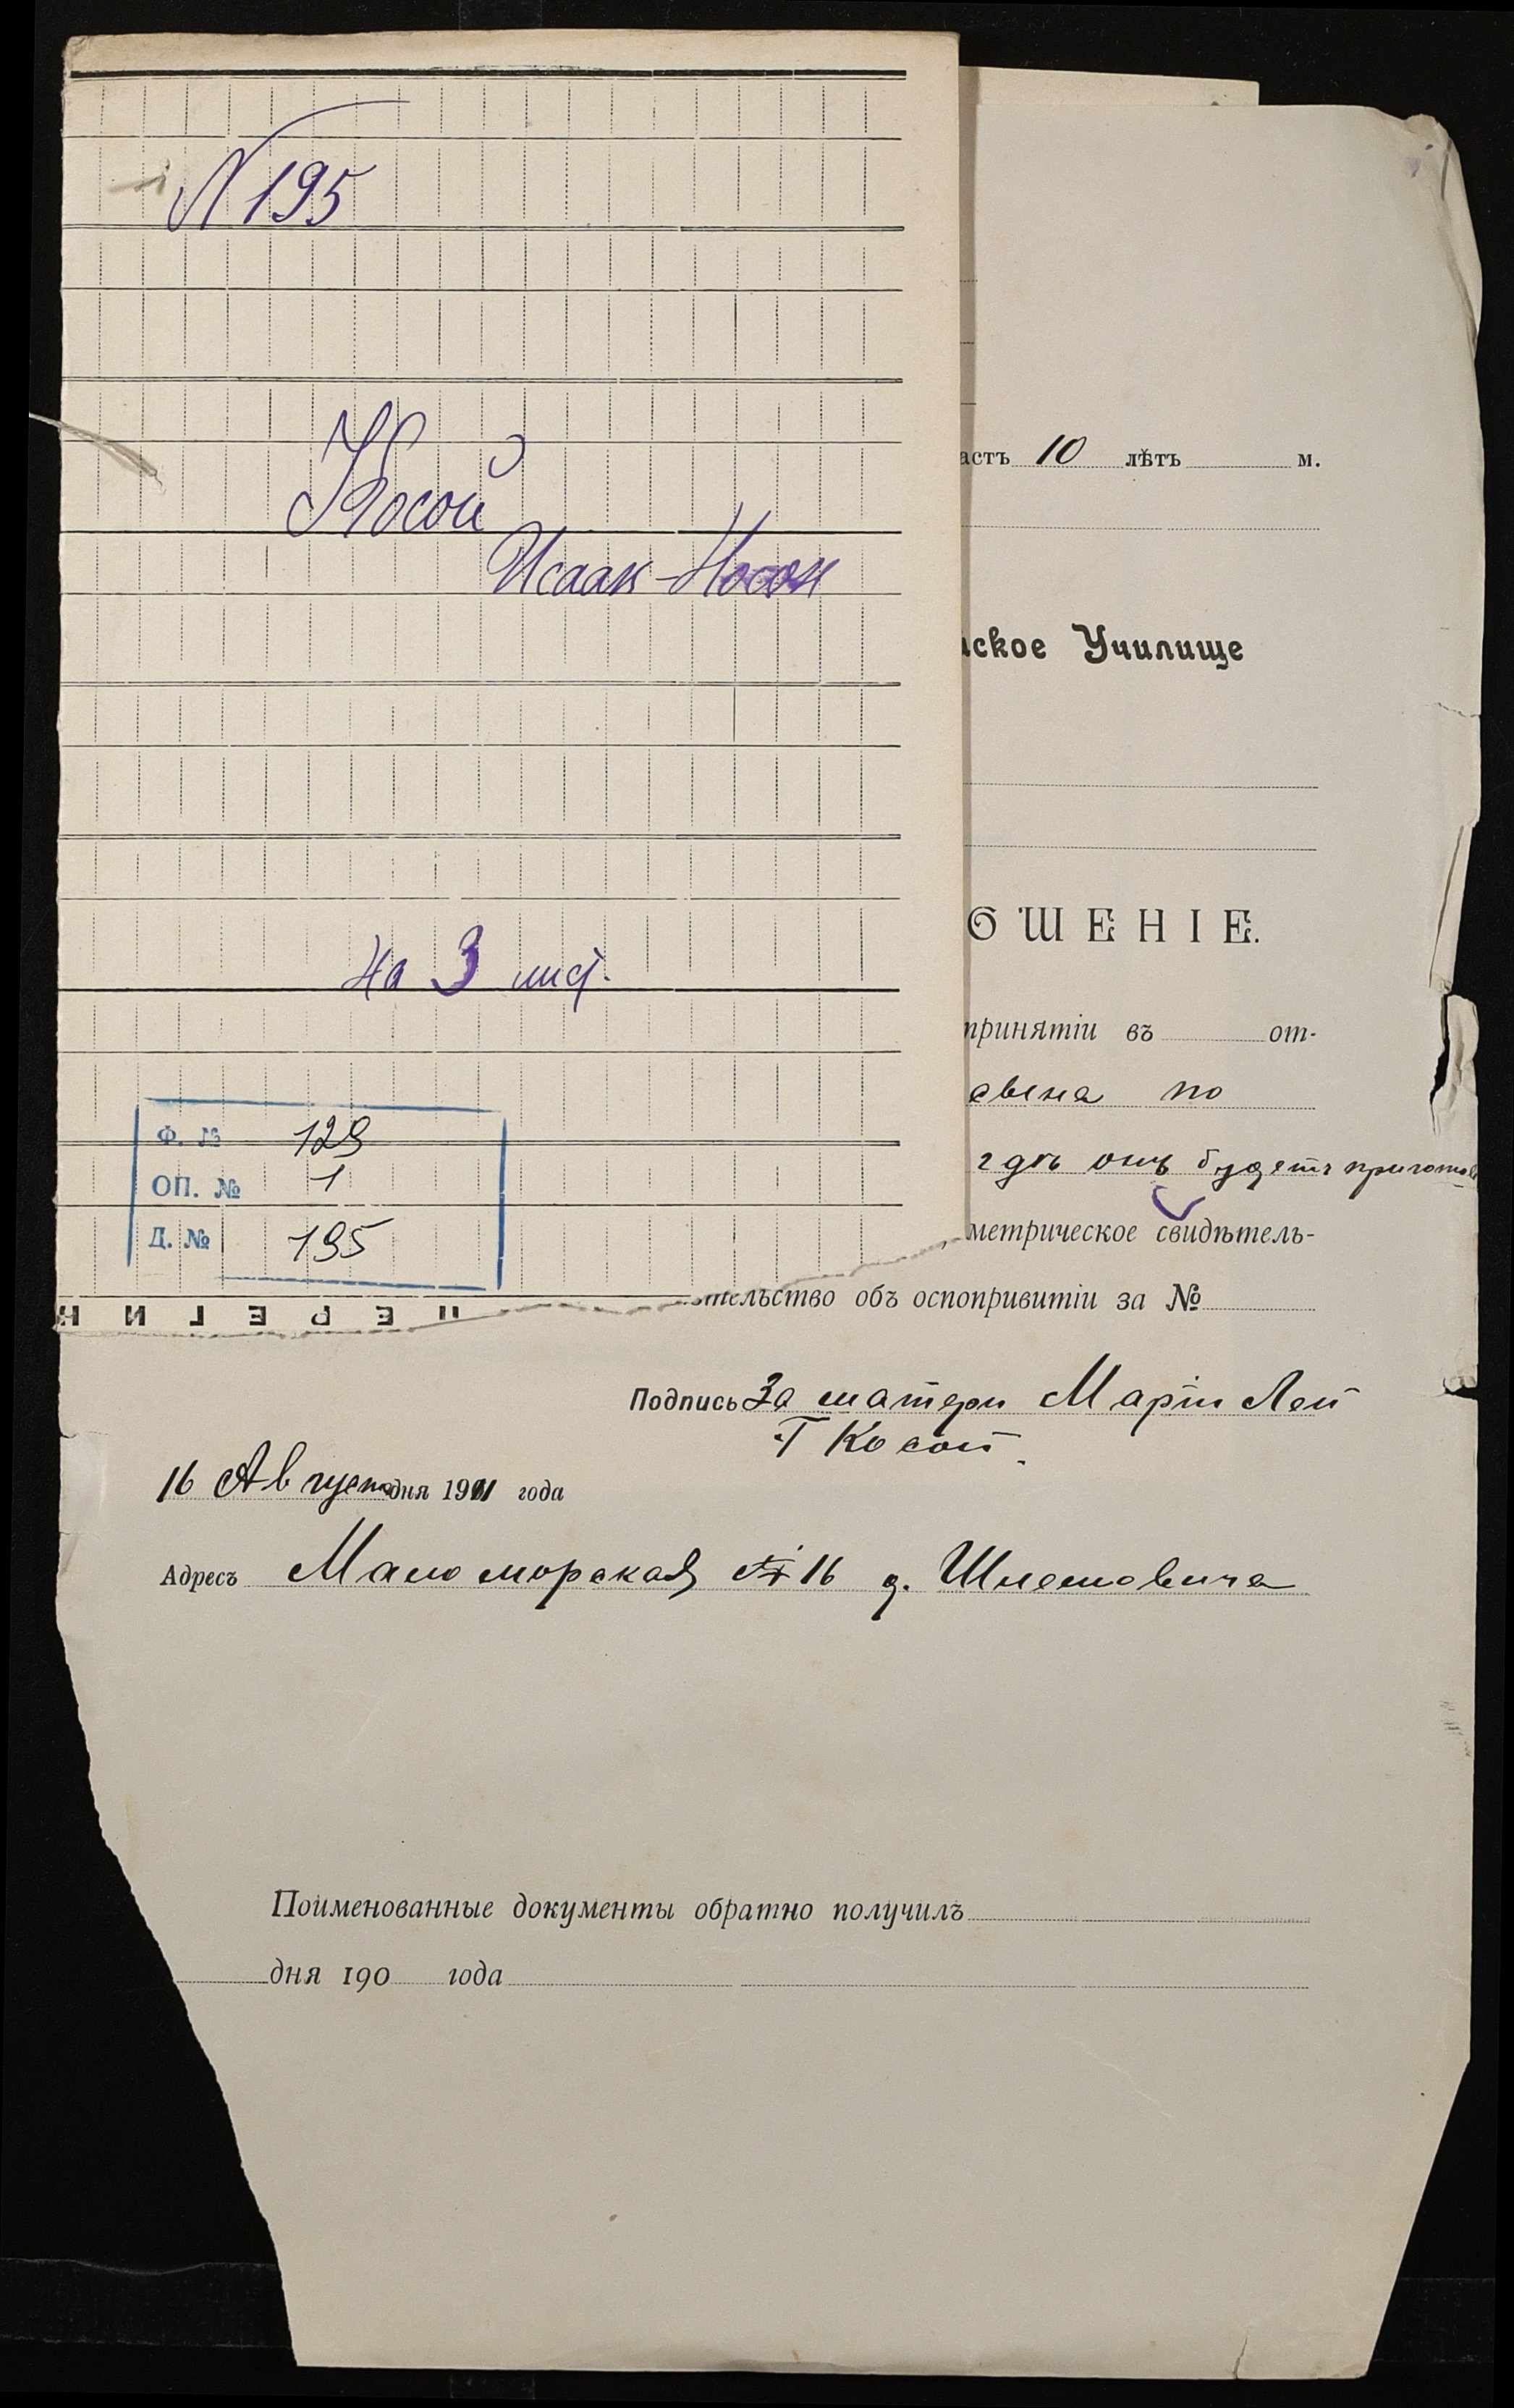 N 195
Косой
Исаак-Носон
на 3 лист.
Ф. № 129
ОП. № 1
Д. № 195
ПЕРЕГИН
астъ 10 лѣтъ м.
ское Училище
ОШЕНІЕ.
принятіи въ от-
по
гдѣ онъ будетъ приготов
метрическое свидѣтель-
тельство объ оспопривитіи за №
Подпись За матери Маріи Леи
Г Косой
16 Августа дня 1911 года
Адресъ Мало морская № 16 д. Шлемовича
Поименованные документы обратно получилъ
дня 190 года